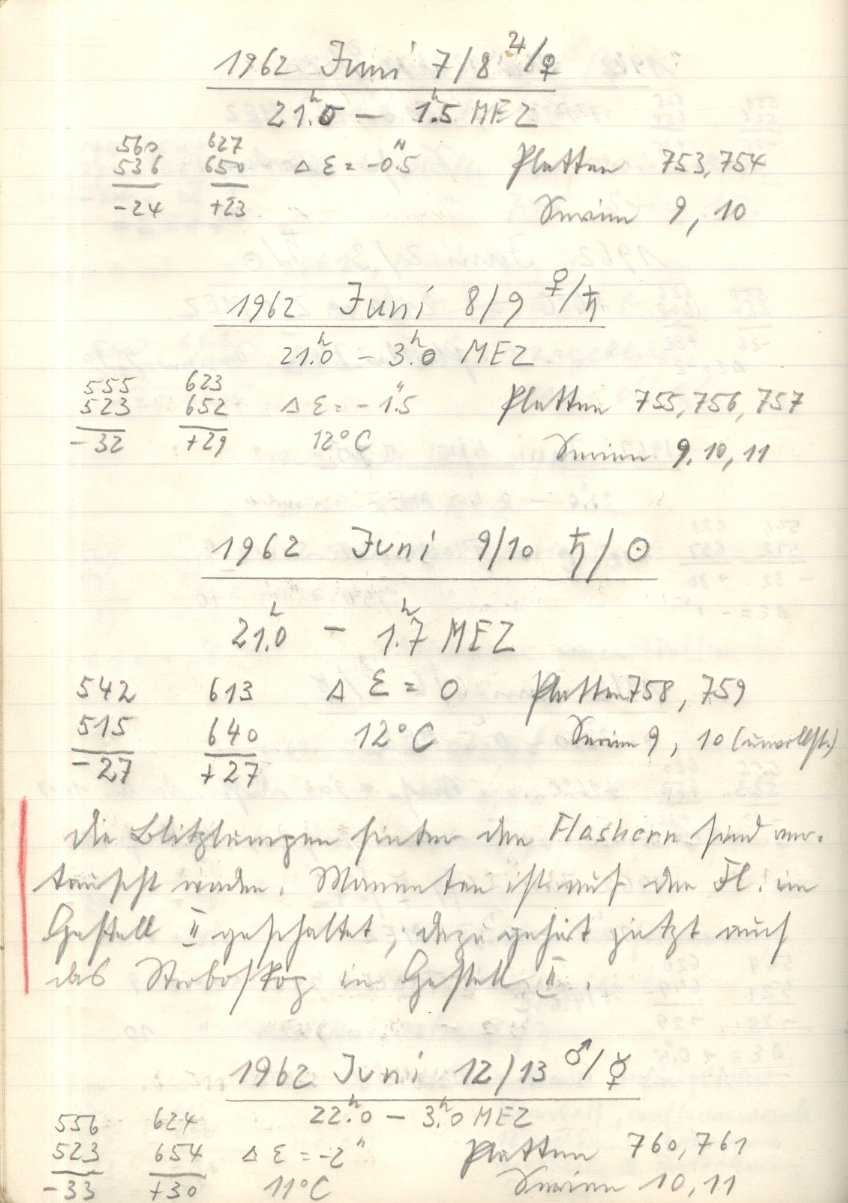 1962 Juni 7/8 ♃/♀
21.ʰ0 – 1.ʰ5 MEZ
560 627
536 650 Δ ε = -0.″5 Platten 753, 754
-24 +23 Serien 9, 10
1962 Juni 8/9 ♀/♄
21.ʰ0 – 3.ʰ0 MEZ
555 623
523 652 Δ ε = -1.″5 Platten 755, 756, 757
-32 +29 12°C Serien 9, 10, 11
1962 Juni 9/10 ♄/☉
21.ʰ0 – 1.ʰ7 MEZ
542 613 Δ ε = 0 Platten 758, 759
515 640 12°C Serien 9, 10 (unvollst.)
-27 +27
Die Blitzlampen hinter den Flashern sind ver-
tauscht worden. Momentan ist auf den Fl. im
Gestell II geschaltet, dazu gehört jetzt auch
das Stroboskop in Gestell II.
1962 Juni 12/13 ♂/☿
22.ʰ0 – 3.ʰ0 MEZ
556 624
523 654 Δ ε = -2″ Platten 760, 761
-33 +30 11°C Serien 10, 11